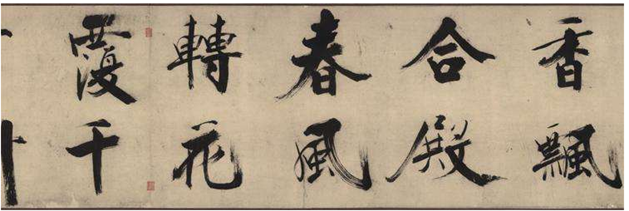 香飄
合殿
春風
轉花
覆千